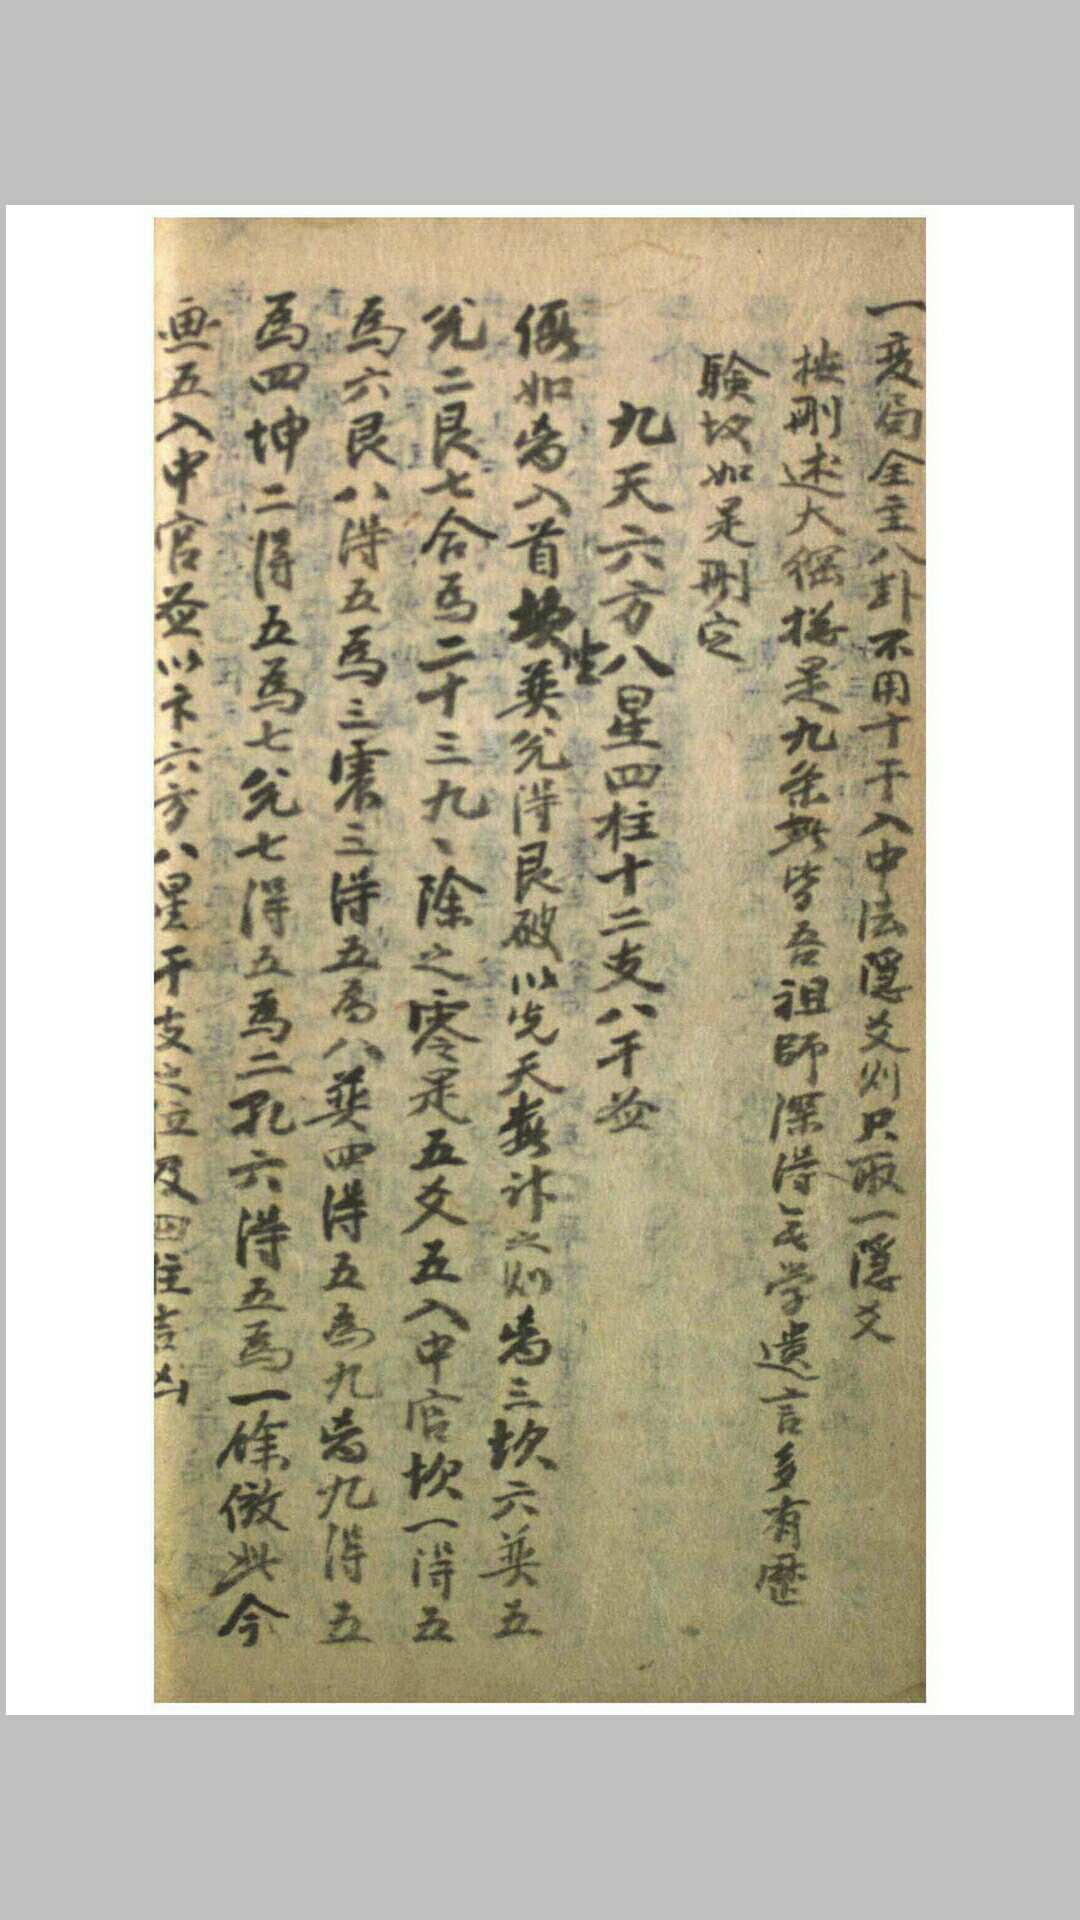 一变局全主八卦不用十干入中法隱爻则只取一隱爻
按刪述大綱揔是九条斯皆吾祖師深得之学遺言多有歷
験故如是刪定
九天六方八星四柱十二支八干並
假如离入首坎坐巽兊得艮破以先天数计之则离三坎六巽五
兊二艮七合為二十三九〻除之零是五爻五入中宫坎一得五
為六艮八得五為三震三得五為八巽四得五為九离九得五
為四坤二得五為七兊七得五為二乹六得五為一餘倣此今
画五入中宫並以卞六方八星干支之位及四柱吉凶